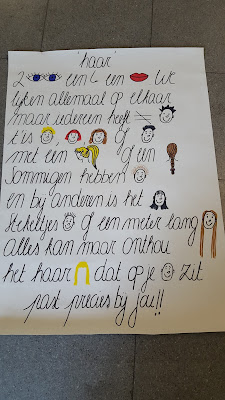 'haar'
2 een een We
lijken allemaal op elkaar
maar iedereen heeft
t is , , of
met een of een
Sommigen hebben
en bij anderen is het
stekeltjes of een meter lang
Alles kan maar onthou
het haar dat op je zit
past precies bij jou!!